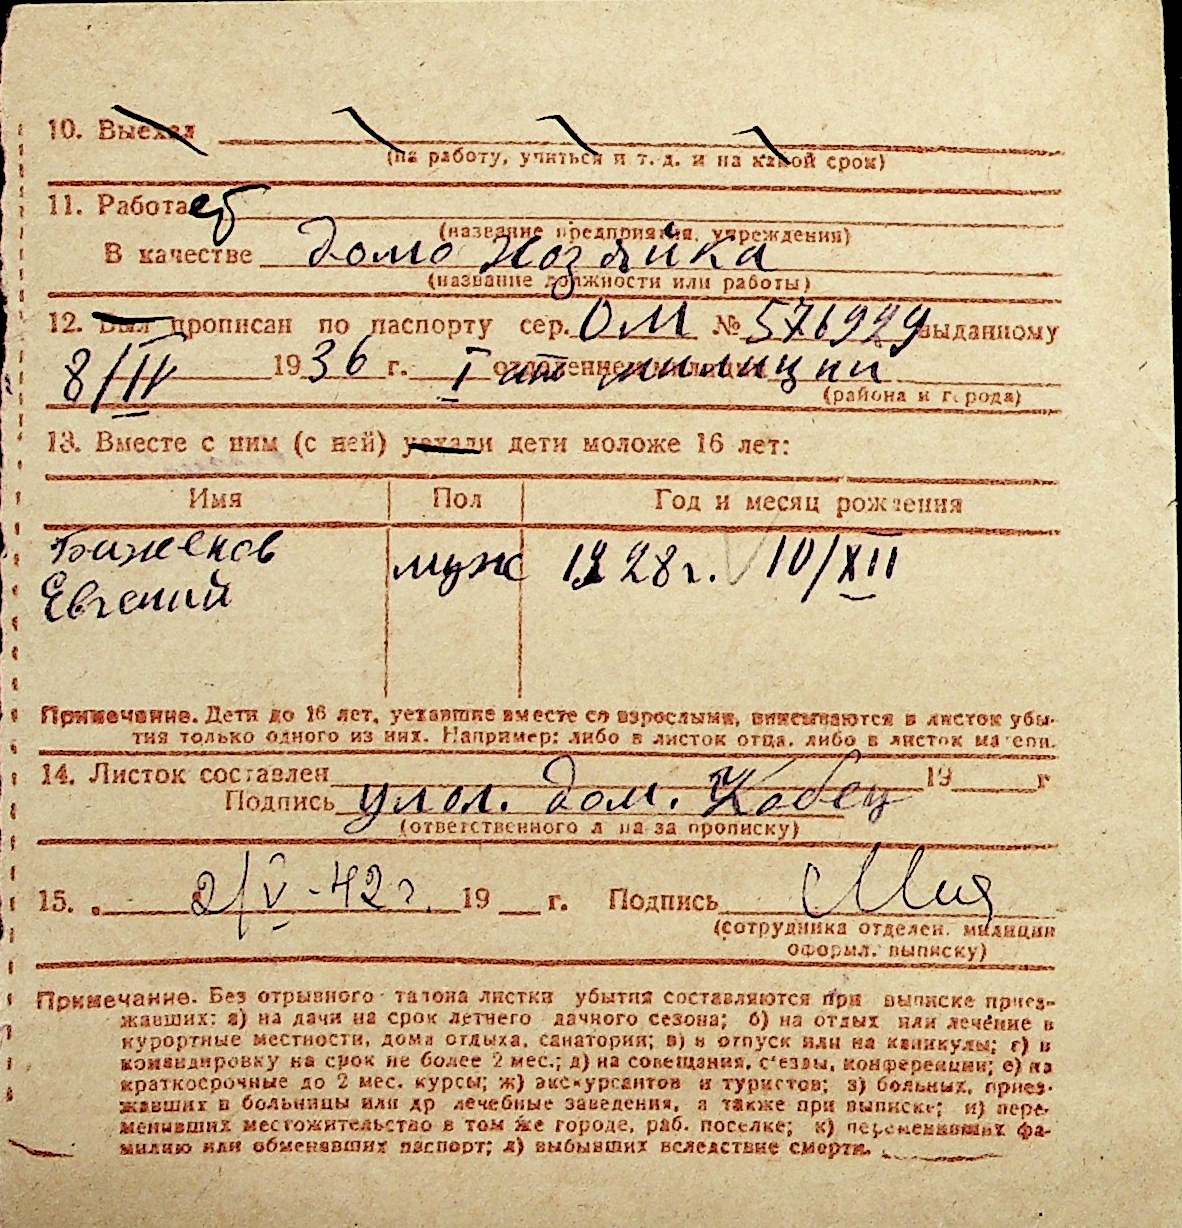 10. Выехал
(на работу, учиться и т. д. и на какой срок)
11. Работает
(название предприятия, учреждения)
В качестве домо хозяйка
(название должности или работы)
12. Был прописан по паспорту сер. ОМ № 576929 выданному
8/IV 1936 г. I отделением милиции
(района и города)
13. Вместе с ним (с ней) уехали дети моложе 16 лет:
Имя Пол Год и месяц рождения
Баженов
Евгений муж 1928 г. 10/XII
Примечание. Дети до 16 лет, уехавшие вместе со взрослыми, вписываются в листок убы-
тия только одного из них. Например: либо в листок отца, либо в листок матери.
14. Листок составлен 19 г
Подпись упол. дом. Кобец
(ответственного лица за прописку)
15. 2/V-42 г. 19 г. Подпись
(сотрудника отделен. милиции
оформл. выписку)
Примечание. Без отрывного талона листки убытия составляются при выписке приез-
жавших: а) на дачи на срок летнего дачного сезона; б) на отдых или лечение в
курортные местности, дома отдыха, санатории; в) в отпуск или на каникулы; г) в
командировку на срок не более 2 мес.; д) на совещания, с'езды, конференции; е) на
краткосрочные до 2 мес. курсы; ж) экскурсантов и туристов; з) больных, приез-
жавших в больницы или др лечебные заведения, а также при выписке; и) пере-
менивших местожительство в том же городе, раб. поселке; к) переменивших фа-
милию или обменявших паспорт; л) выбывших вследствие смерти.